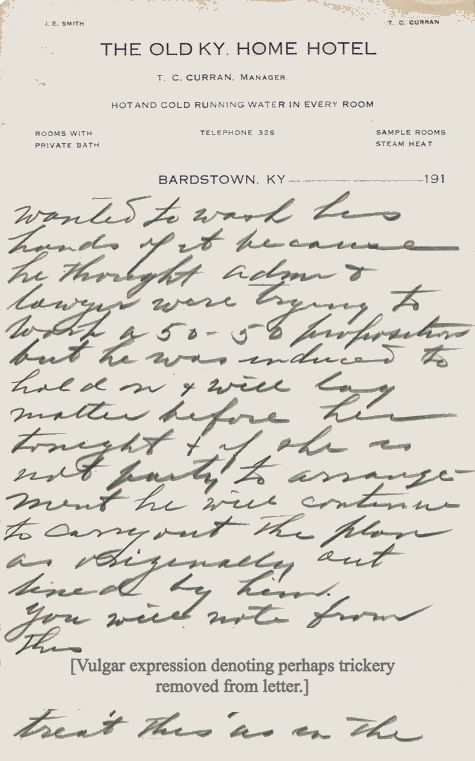 J. E. SMITH
T. C. CURRAN
THE OLD KY. HOME HOTEL
T. C. CURRAN, MANAGER
HOT AND COLD RUNNING WATER IN EVERY ROOM
ROOMS WITH
PRIVATE BATH
TELEPHONE 326
SAMPLE ROOMS
STEAM HEAT
BARDSTOWN, KY 191
wanted to wash his
hands of it because
he thought admr &
lawyer were trying to
work a 50-50 proposition
but he was induced to
hold on & will lay
matter before her
tonight & if she is
not party to arrange-
ment he will continue
to carry out the plan
as originally out
lined by him.
You will note from
this
[Vulgar expression denoting perhaps trickery
removed from letter.]
treat this as in the